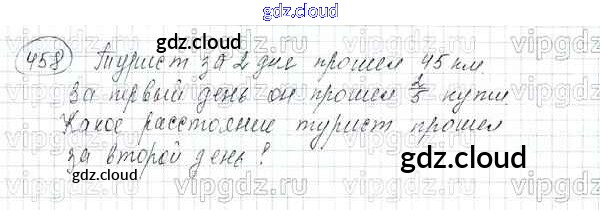 gdz.cloud
gdz.cloud
458 Турист за 2 дня прошел 45 км.
За первый день он прошел 2/5 пути.
Какое расстояние турист прошел
за второй день?
gdz.cloud
gdz.cloud